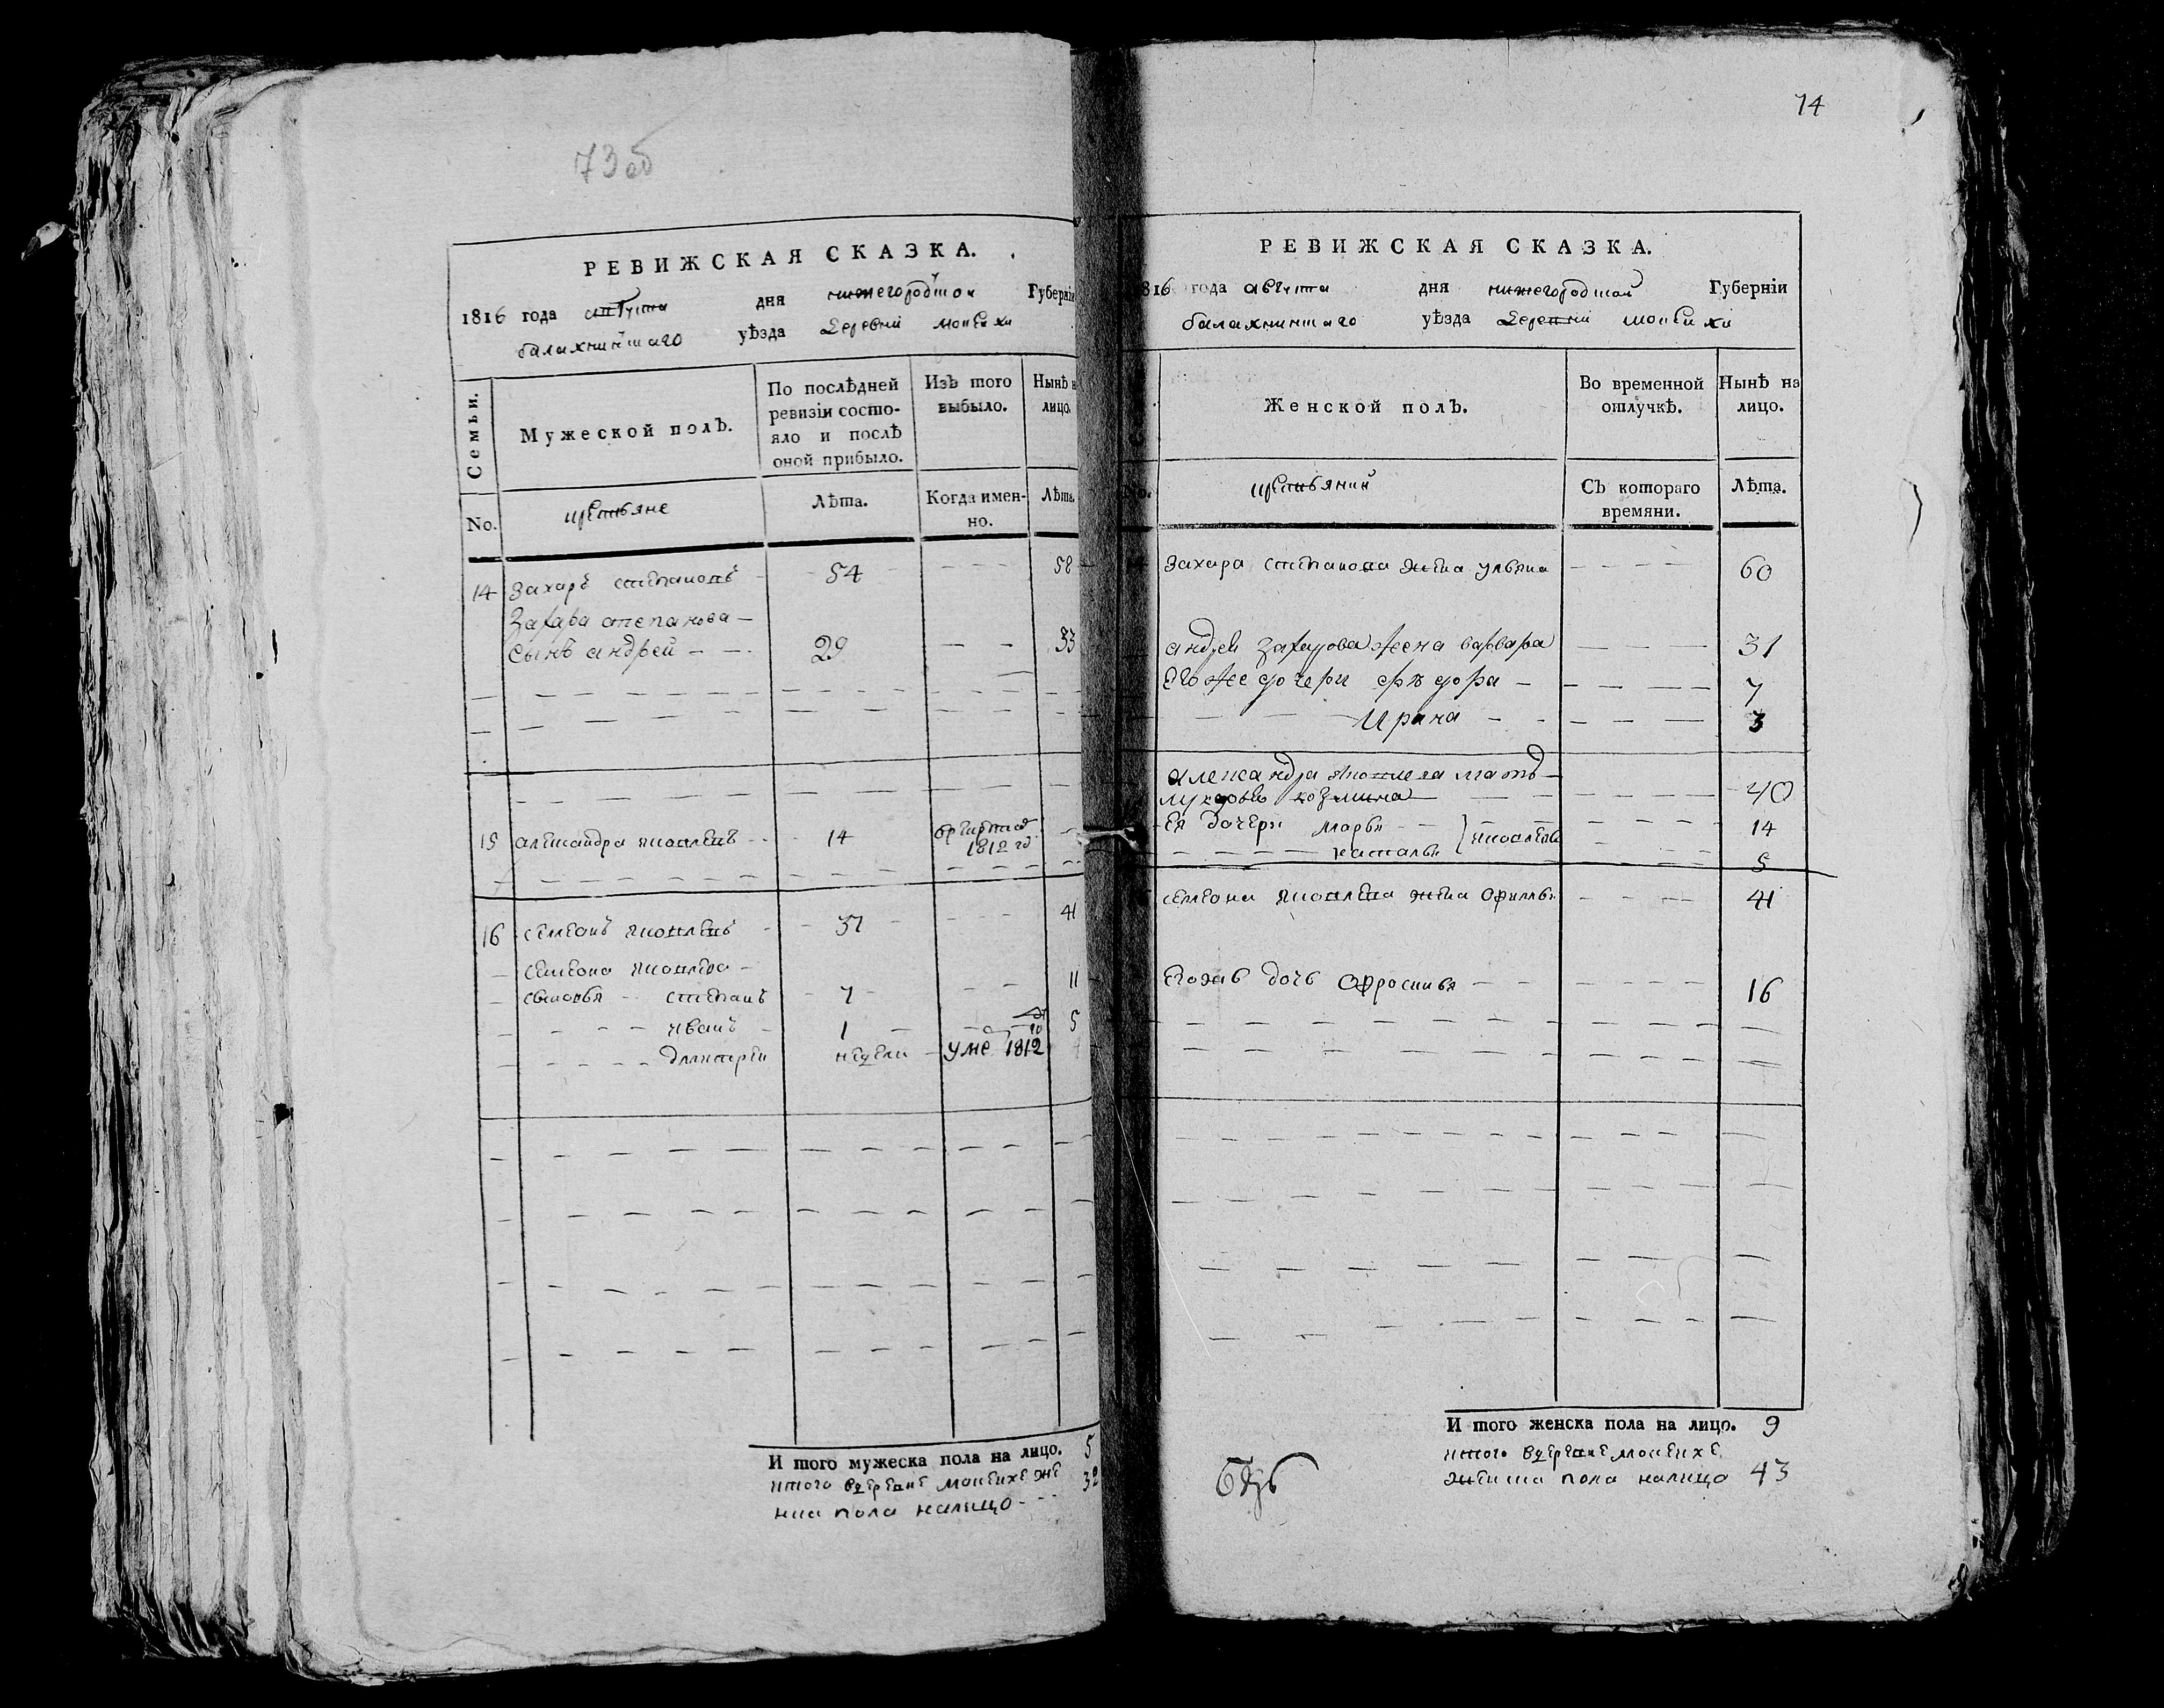 73об
РЕВИЖСКАЯ СКАЗКА.
1816 года августа дня нижегородской Губерніи
балахнинскаго уѣзда деревни
Семьи.
Мужеской полъ.
По послѣдней ревизіи состо-
яло и послѣ
оной прибыло.
Изъ того
выбыло.
Нынѣ на
лицо.
No.
крестьяне
Лѣта.
Когда имен-
но.
Лѣта.
14 Захаръ степановъ 54 58
Захара степанова
сынъ андрей 29 33
15 александра яковлевъ 14 1812 го
16 семенъ яковлевъ 37 41
семена яковлева
сыновья степанъ 7 11
иванъ 1 5
дмитреи недели уме 1812
И того мужеска пола на лицо. 5
итого вдеревне муже
ска пола налицо 32
74
РЕВИЖСКАЯ СКАЗКА.
1816 года августа дня нижегородской Губерніи
балахнинскаго уѣзда деревни
Женской полъ.
Во временной
отлучкѣ.
Нынѣ на
лицо.
No.
Съ котораго
времяни.
Лѣта.
Захара степанова жена ульяна 60
андрея захарова жена варвара 31
его же дочери федора 7
Ирина 3
александра яковлева мать
лукерья козмина 40
ея дочери марья яковлевы 14
наталья 5
семена яковлева жена 41
Егожъ дочь офросинья 16
И того женска пола на лицо. 9
итого вдеревне
женска пола налицо 43